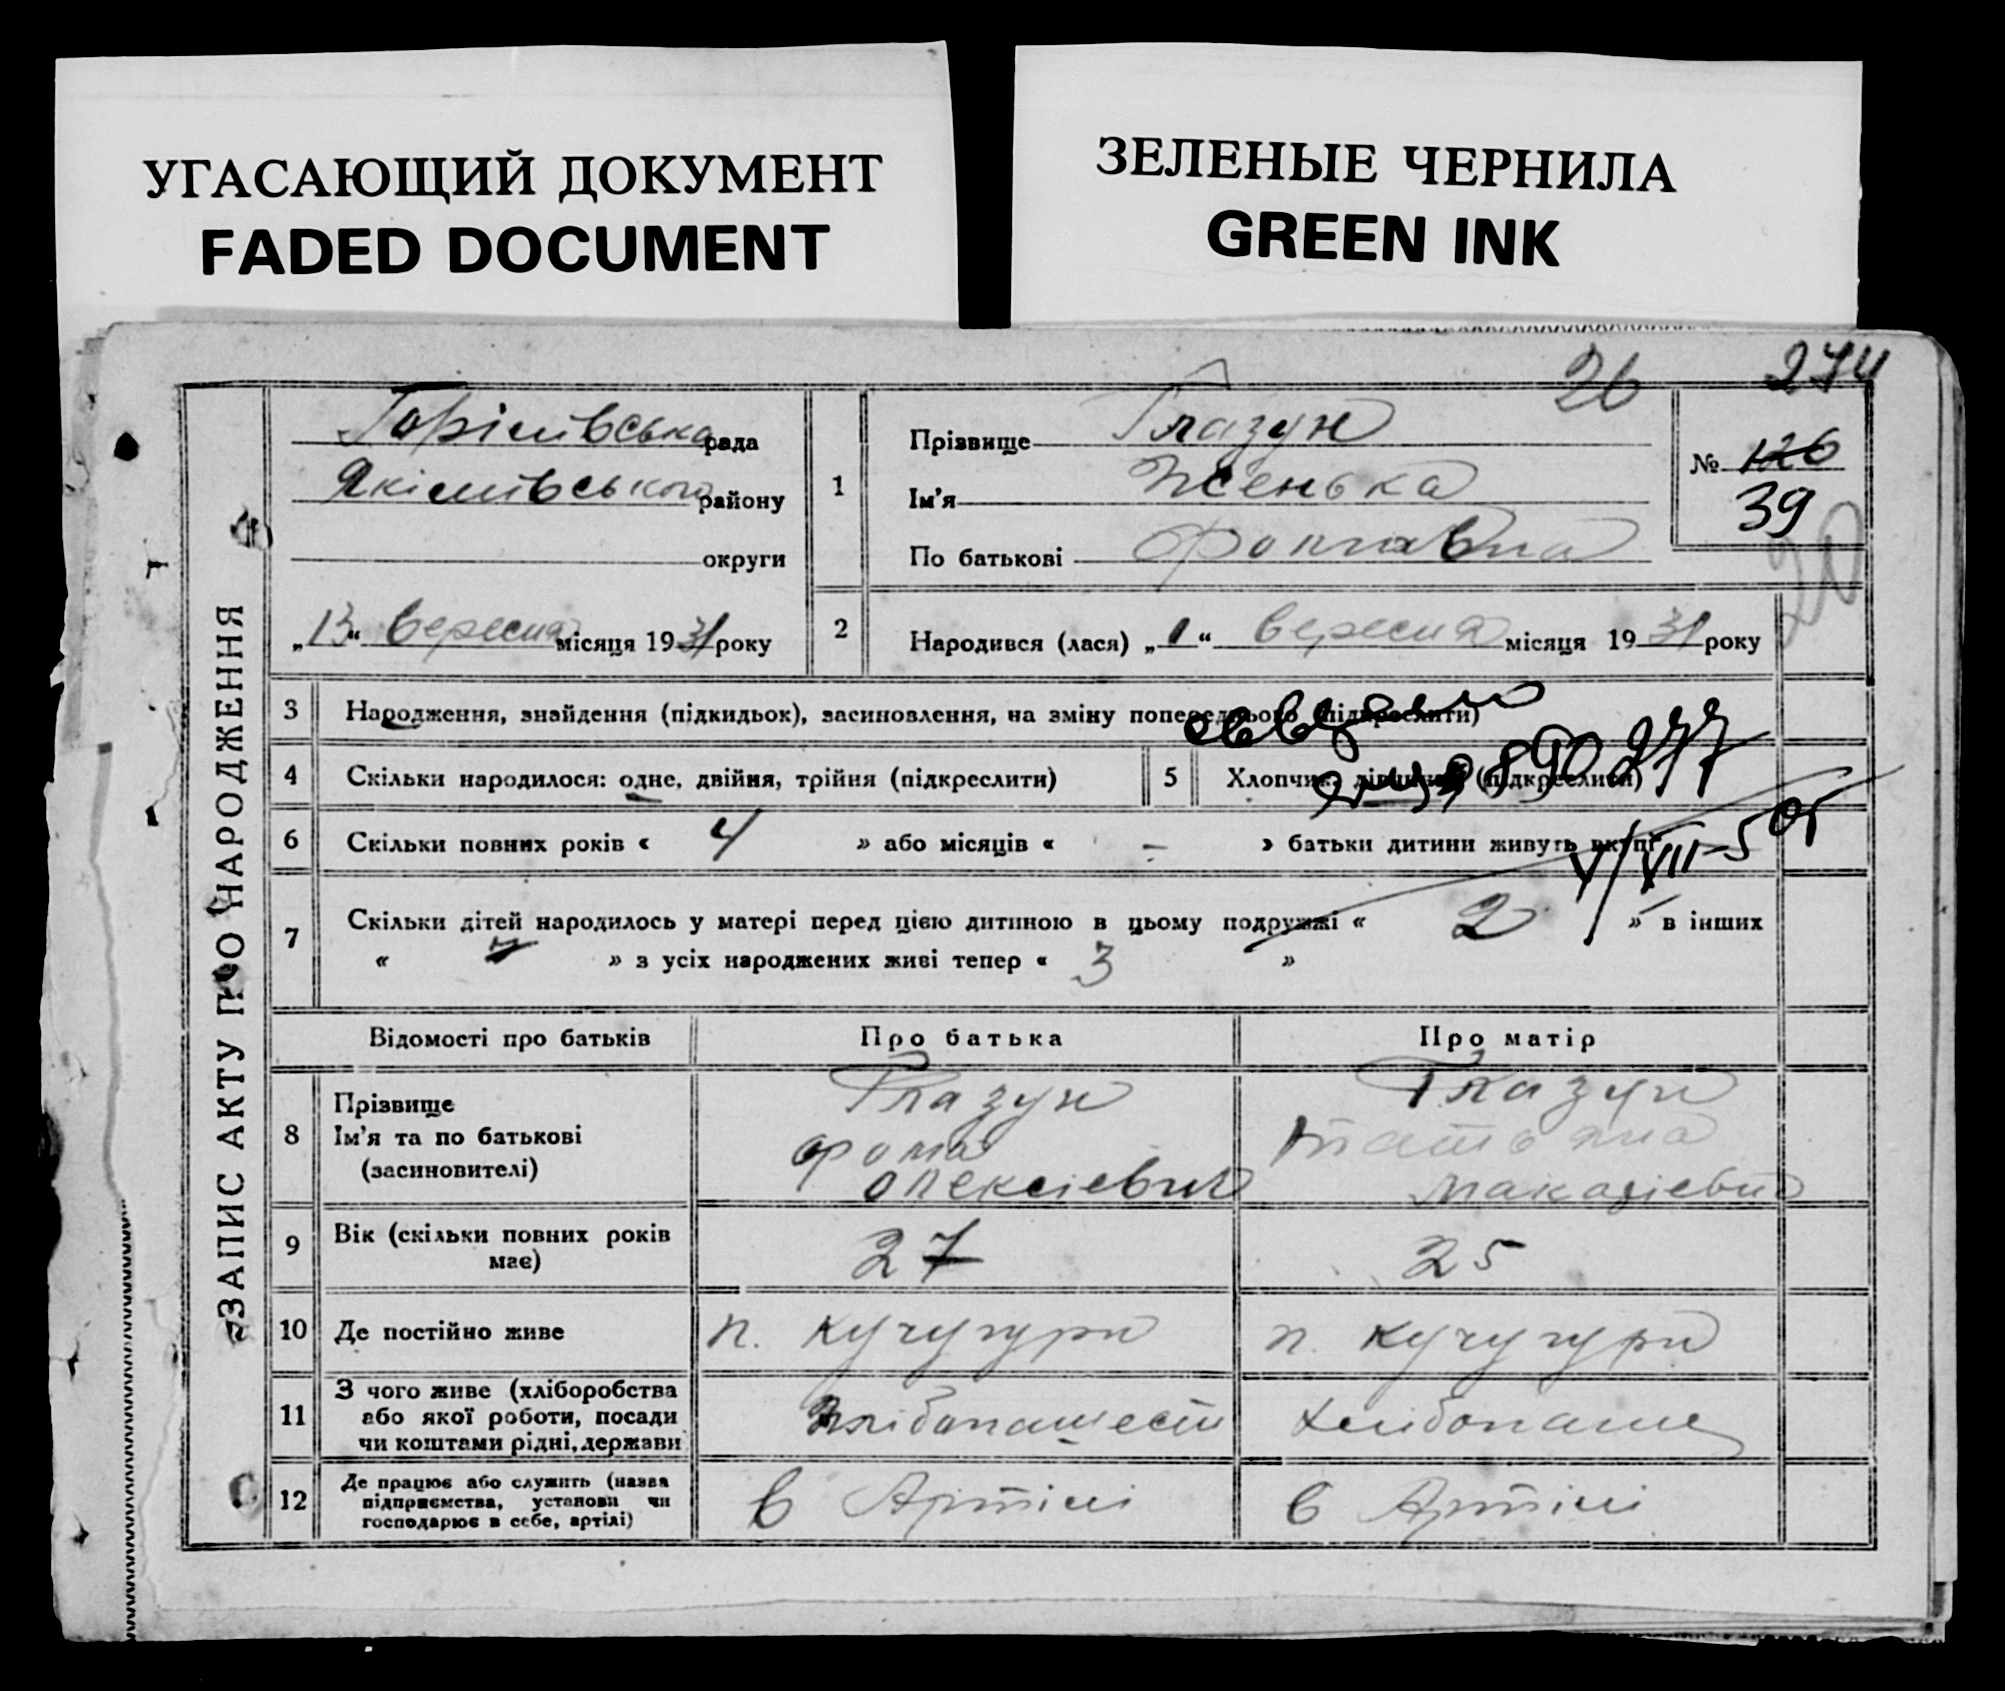 УГАСАЮЩИЙ ДОКУМЕНТ
FADED DOCUMENT
ЗЕЛЕНЫЕ ЧЕРНИЛА
GREEN INK
26
274
ЗАПИС АКТУ ПРО НАРОДЖЕННЯ
Горілівська рада
Якимівського району
округи
„13“ вересня місяця 1931 року
1
Прізвище Глазун
Ім'я Женька
По батькові Фомавна
№ 126
39
20
2 Народився (лася) „1“ вересня місяця 1931 року
3 Народження, знайдення (підкидьок), засиновлення, на зміну попереднього (підкреслити)
4 Скільки народилося: одне, двійня, трійня (підкреслити)
5 Хлопчик, дівчинка (підкреслити)
890277
6 Скільки повних років « 4 » або місяців « - » батьки дитини живуть вкупі
V/VII-50г
7 Скільки дітей народилось у матері перед цією дитиною в цьому подружжі « 2 » в інших
« » з усіх народжених живі тепер « 3 »
Відомості про батьків Про батька Про матір
8 Прізвище
Ім'я та по батькові
(засиновителі)
Глазун
Фома
Олексієвич
Глазун
Татьяна
Макарієвна
9 Вік (скільки повних років
має)
27
25
10 Де постійно живе
п. Кучугури
п. Кучугури
11 З чого живе (хліборобства
або якої роботи, посади
чи коштами рідні, держави
12 Де працює або служить (назва
підприємства, установи чи
господарює в себе, артілі)
в Артілі
в Артілі